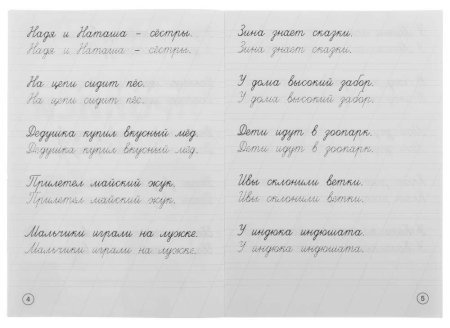 Надя и Наташа – сёстры.
Надя и Наташа – сёстры.
На цепи сидит пёс.
На цепи сидит пёс.
Дедушка купил вкусный мёд.
Дедушка купил вкусный мёд.
Прилетел майский жук.
Прилетел майский жук.
Мальчики играли на лужке.
Мальчики играли на лужке.
4
Зина знает сказки.
Зина знает сказки.
У дома высокий забор.
У дома высокий забор.
Дети идут в зоопарк.
Дети идут в зоопарк.
Ивы склонили ветки.
Ивы склонили ветки.
У индюка индюшата.
У индюка индюшата.
5